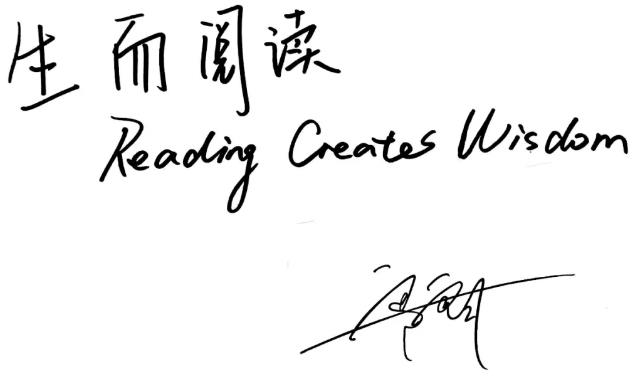 生而阅读
Reading Creates Wisdom